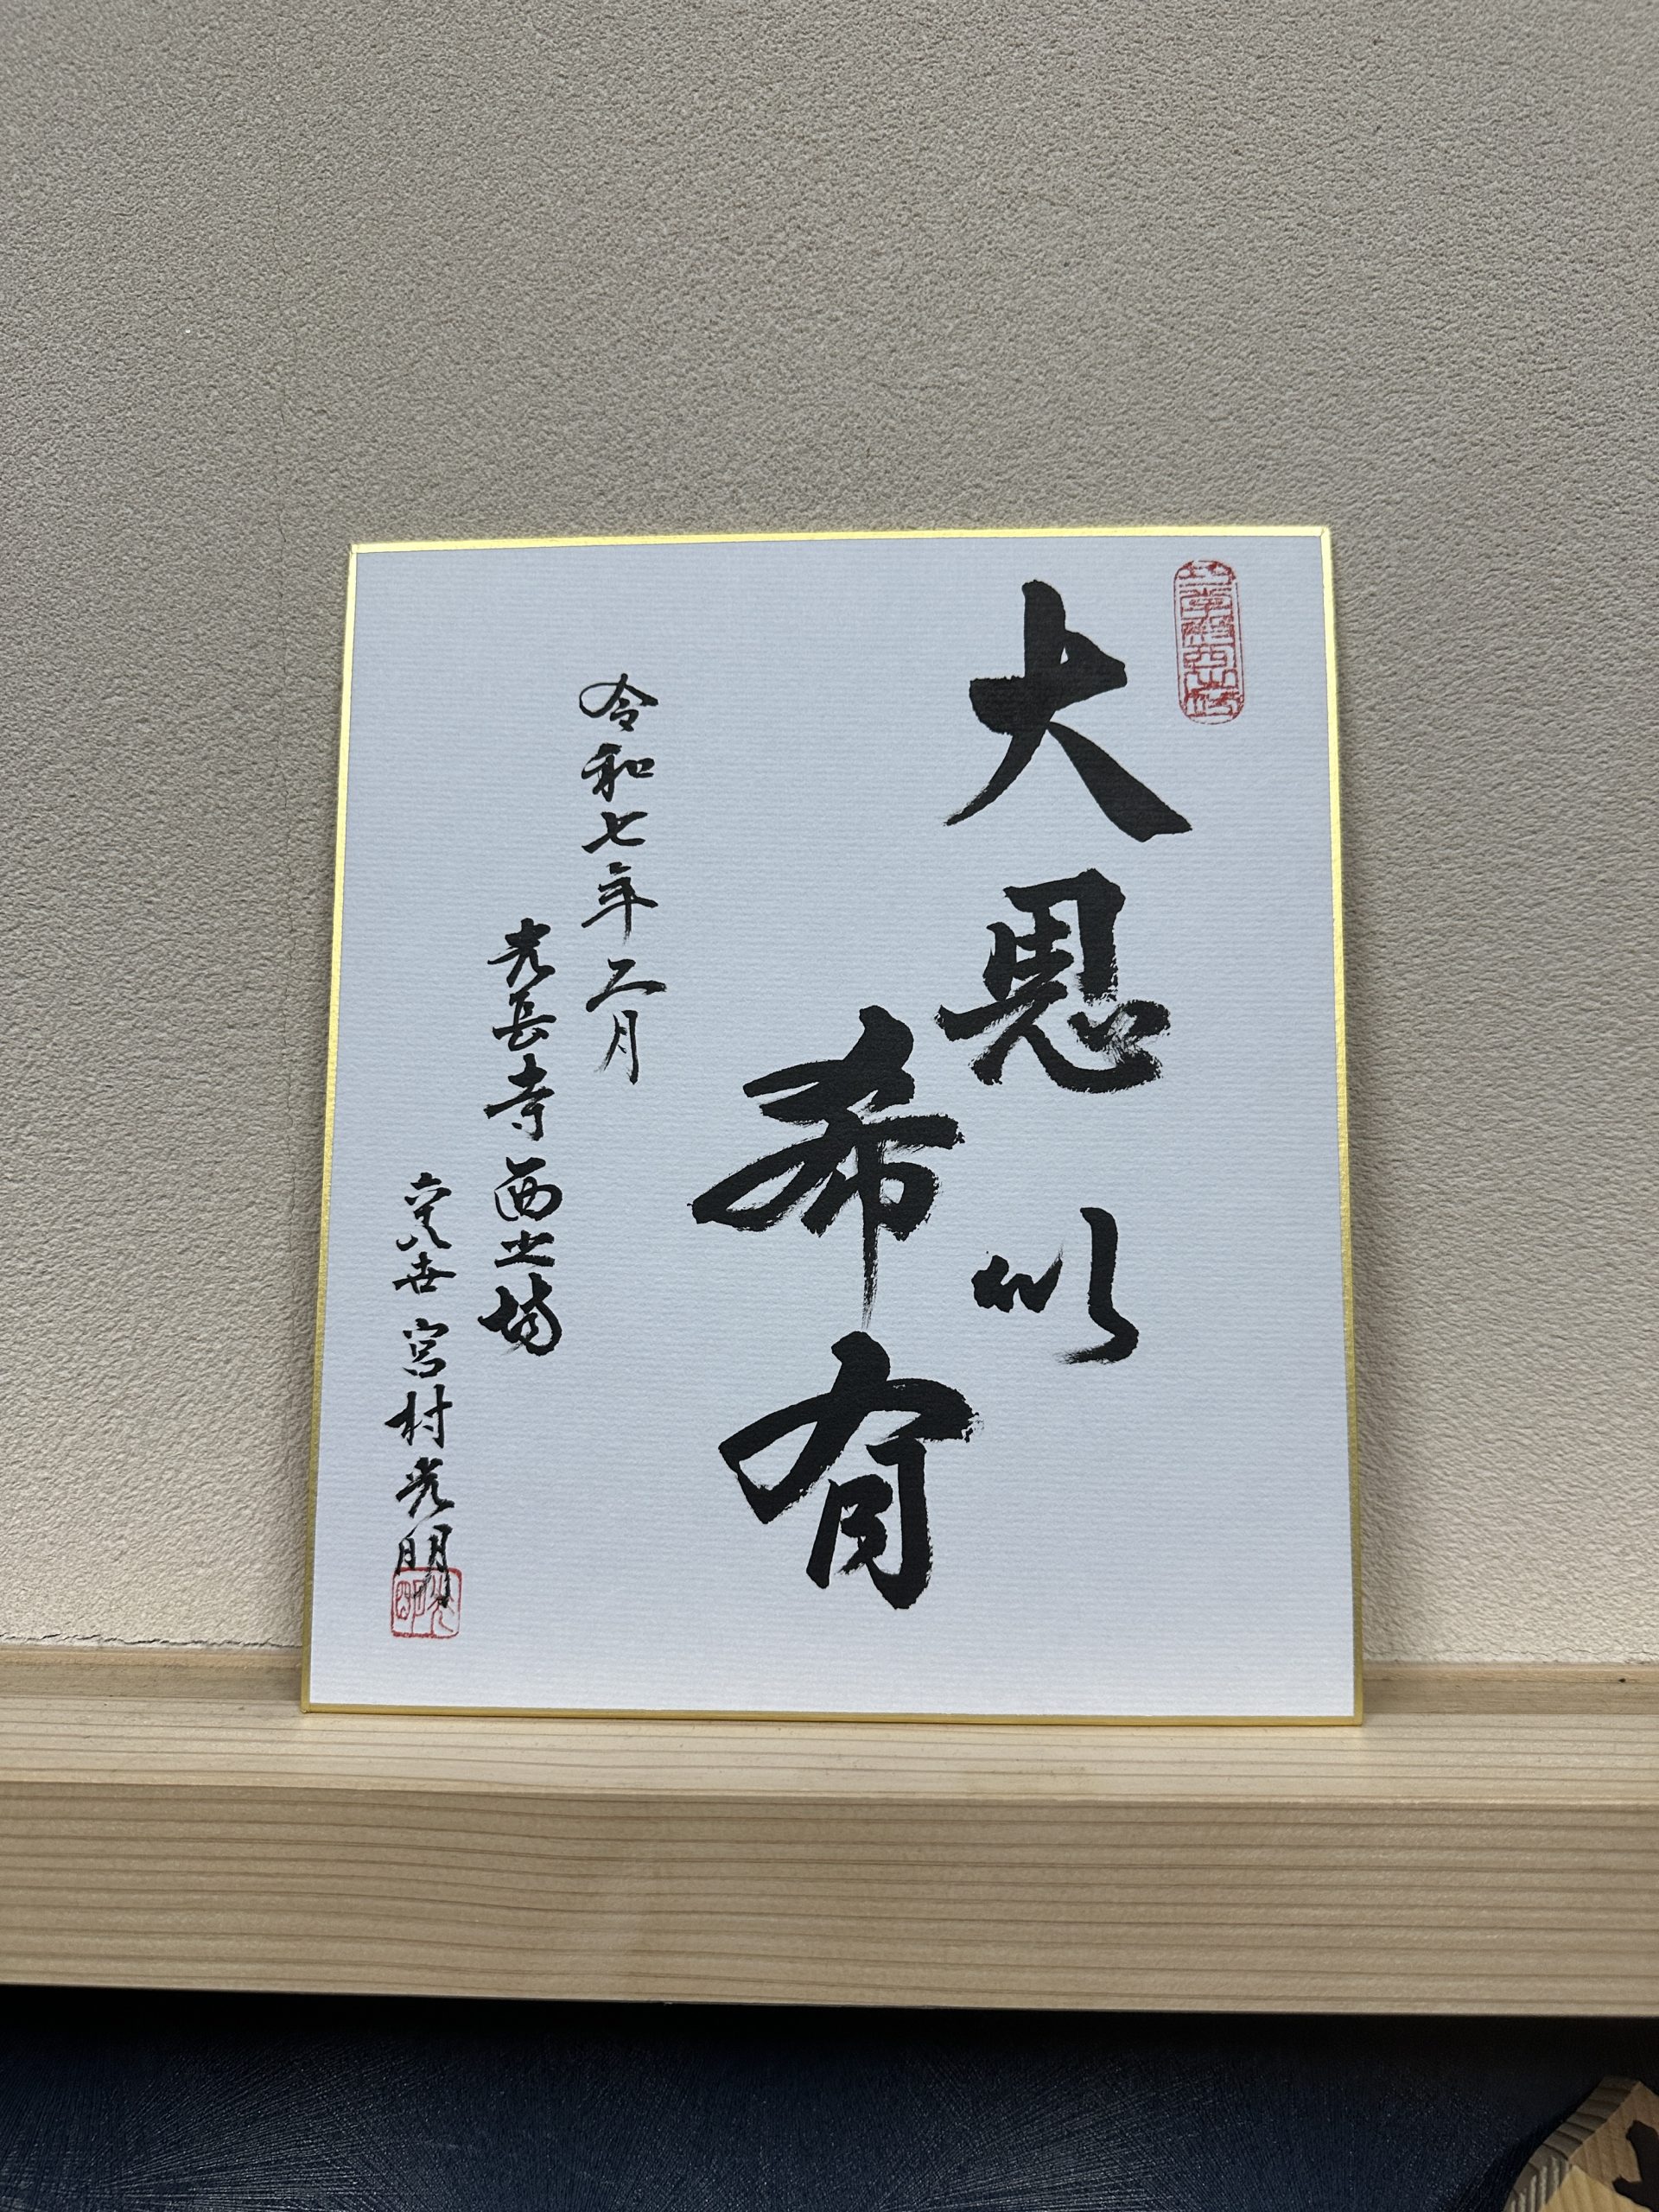 大恩以
希有
令和七年二月
光長寺西之坊
宮村光明